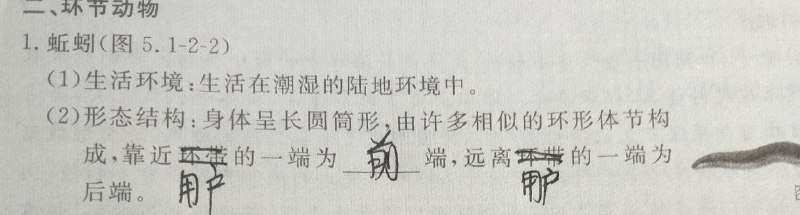 二、环节动物
1. 蚯蚓(图 5.1-2-2)
(1)生活环境:生活在潮湿的陆地环境中。
(2)形态结构:身体呈长圆筒形,由许多相似的环形体节构
成,靠近环带的一端为 前 端,远离环带的一端为
用户 用户
后端。